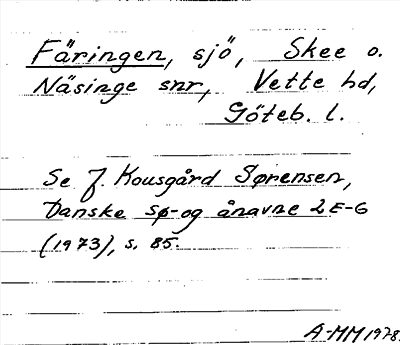 Färingen, sjö, Skee o.
Näsinge snr, Vette hd,
Göteb. l.
Se J. Kousgård Sørensen,
Danske sø- og ånavne 2 E-G
(1973), s. 85.
A-MM 1978.